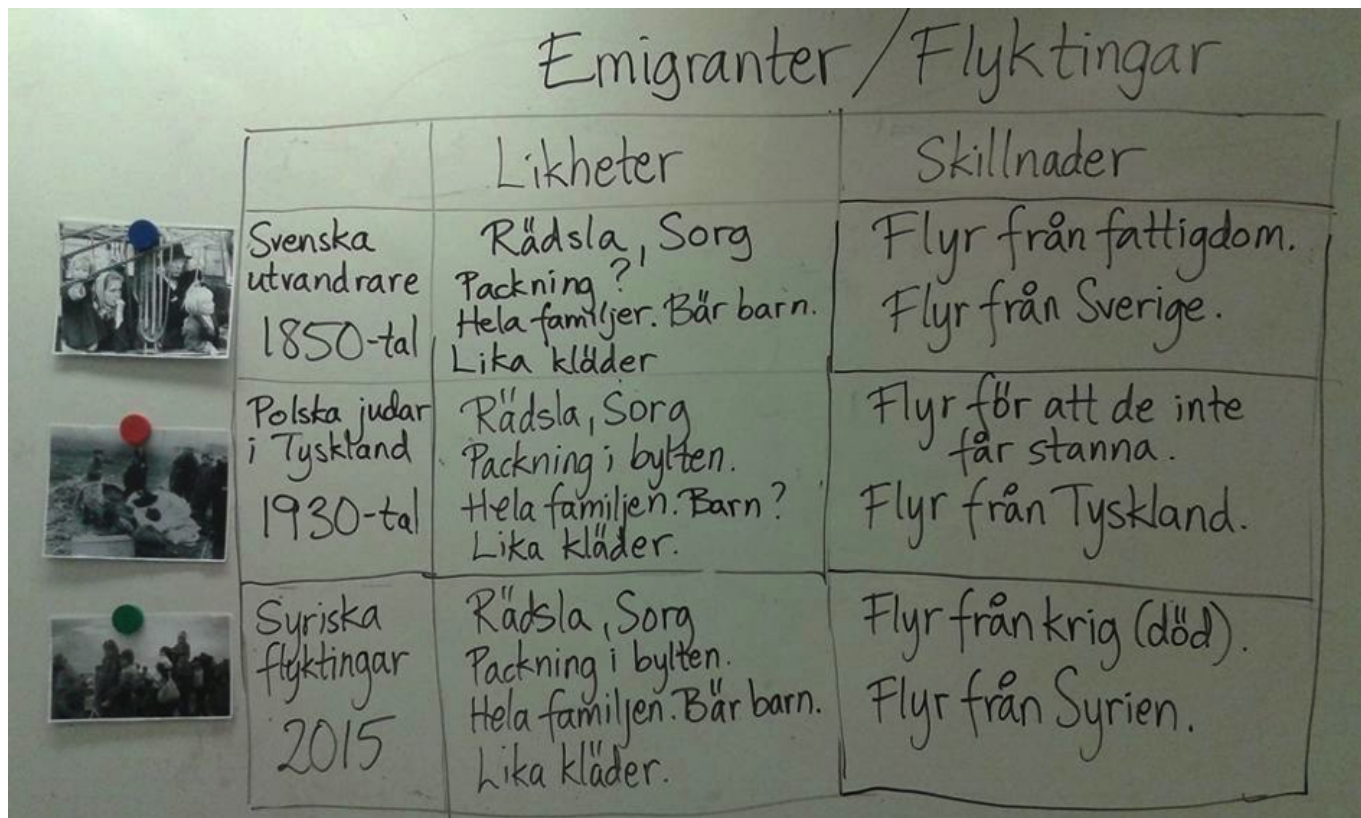 Emigranter / Flyktingar
Likheter
Skillnader
Svenska
utvandrare
1850-tal
Rädsla, Sorg
Packning?
Hela familjer. Bär barn.
Lika kläder
Flyr från fattigdom.
Flyr från Sverige.
Polska judar
i Tyskland
1930-tal
Rädsla, Sorg
Packning i bylten.
Hela familjen. Barn?
Lika kläder.
Flyr för att de inte
får stanna.
Flyr från Tyskland.
Syriska
flyktingar
2015
Rädsla, Sorg
Packning i bylten.
Hela familjen. Bär barn.
Lika kläder.
Flyr från krig (död).
Flyr från Syrien.